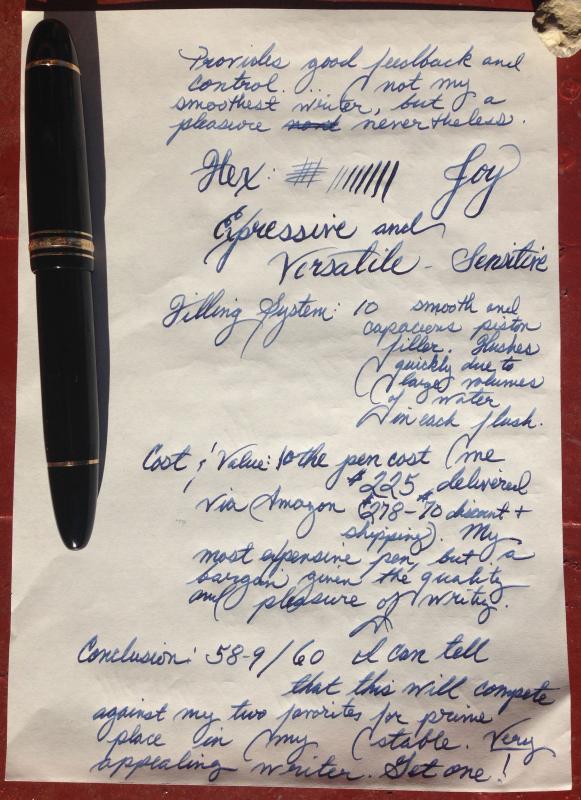 Provides good feedback and
control. . . . not my
smoothest writer, but a
pleasure nevertheless.
Flex: Joy
Expressive and
Versatile - Sensitive
Filling System: 10 smooth and
capacious piston
filler. Flushes
quickly due to
large volumes
of water
in each flush.
Cost & Value: 10 the pen cost me
$225 delivered
via Amazon ($278-$70 discount +
shipping). My
most expensive pen, but a
bargain given the quality
and pleasure of writing.
Conclusion: 58-9/60 I can tell
that this will compete
against my two favorites for prime
place in my stable. Very
appealing writer. Get one!